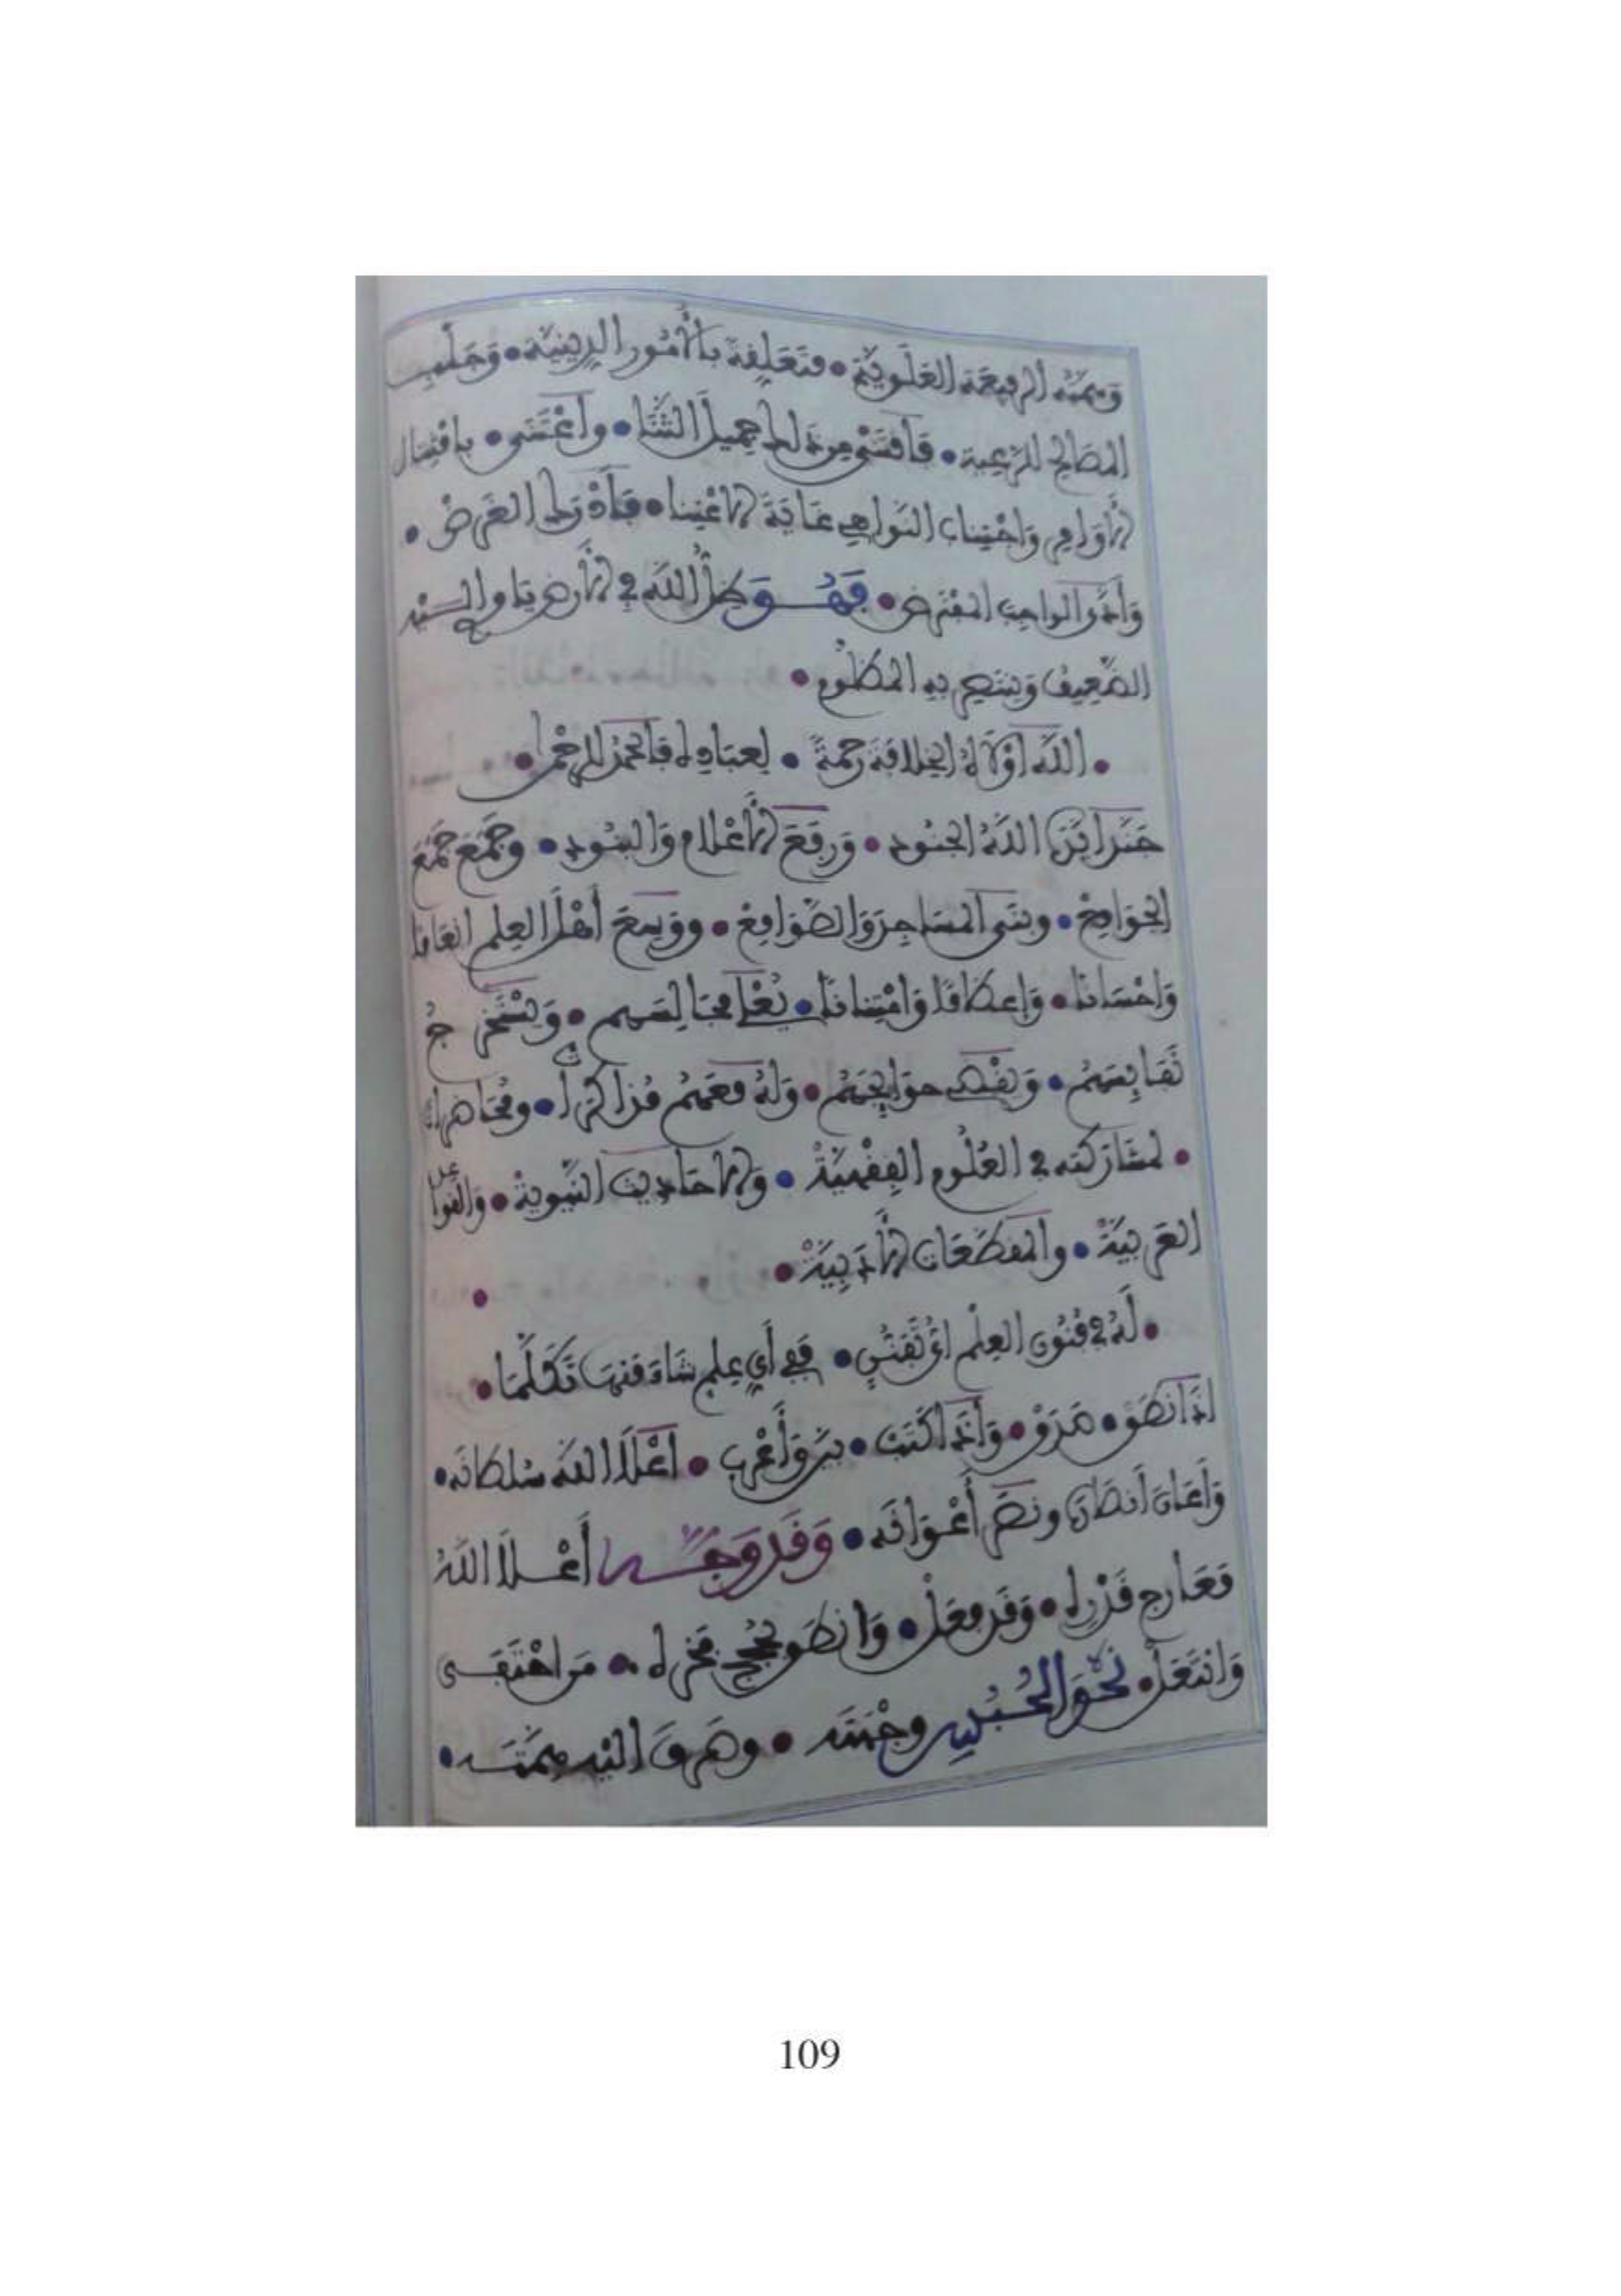 وَهِمَّتُه الرفيعَة العَلَوِيَّة • مُتَعَلِقة بالأُمُور الدِينِيَّة • وَجَلْبِ
المصَالِح للرعِية • فَاقتَنَى من ذلك جميلَ الثَّنَا • واعْتَنَى • بامْتِثال
الأَوَامِر وَاجْتِناب النَواهِي غَايَةَ الاعْتِنا • فَأَدْرَك الغَرَضْ •
وَأدَّى الواجِبَ المفْتَرض • فَهُوَ ظِلُّ اللَه في الأَرض ياوي إليه
الضَّعِيفُ وَينتصِر بِهِ المظْلُوم •
• اللَه أوْلاهُ الخِلافَةَ رحمةً • لِعِبَادِهِ فَالحَمْدُ للرحْمن •
جَنَّدَ الجنُود • وَرفَعَ الأَعْلام وَالبنُود • وَجَمَّعَ جُمَعَ
الجَوَامِعْ • وبنَى المسَاجِدَ وَالصَّوَامِعْ • ووَسِعَ أَهْلَ العِلم إنعَاما
وَاحْسَانَا • وَإعطَافًا وَامْتِنانًا • يُعْلي مجَالِسَهم • وَيَسْتَخْرِجُ
نَفَائِسَهُمْ • وَيَقْضِي حوَائِجَهُمْ • وَلهُ مَعَهُمْ مُذاكرات • ومُحَاضرات
• لمشَارَكَتِه في العُلُوم الفِقْهِيَّةْ • وَالأحَادِيث النَّبَوِيةْ • وَالقواعِد
العَرَبِيَّةْ • والمقطَّعَات الأَدَبِيَّةْ •
• لَهُ في فُنُون العِلْم أيُّ تَفَنُّنٍ • فَفِي أَيِّ عِلمٍ شَاءَ مِنهَا تَكَلَّمَا •
إذَا نَطَقَ • وَإذَا كَتَبَ • بَيَّنَ وَأَعْرَب • أعْلَا اللهُ سُلطَانَه •
وَأَعَانَ أَنصَارَهُ ونَصَرَ أَعْوَانَه • وَقَد وَجَّهَ أَعْلَا اللهُ
مَعَارِج قَدْرِه • وَقَد فَعَل • وَانطَق بحُجَج فَخْرِه • مَن احْتَفَى
وَانْتَعَلْ • نَحْوَ الحُبُسِ وِجْهَتَه • وصَرَفَ إليه هِمَّتَه •
109